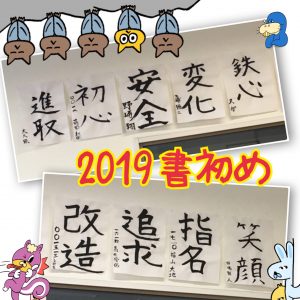 鉄心
変化
安全
初心
進取
2019書初め
笑顔
指名
追求
改造